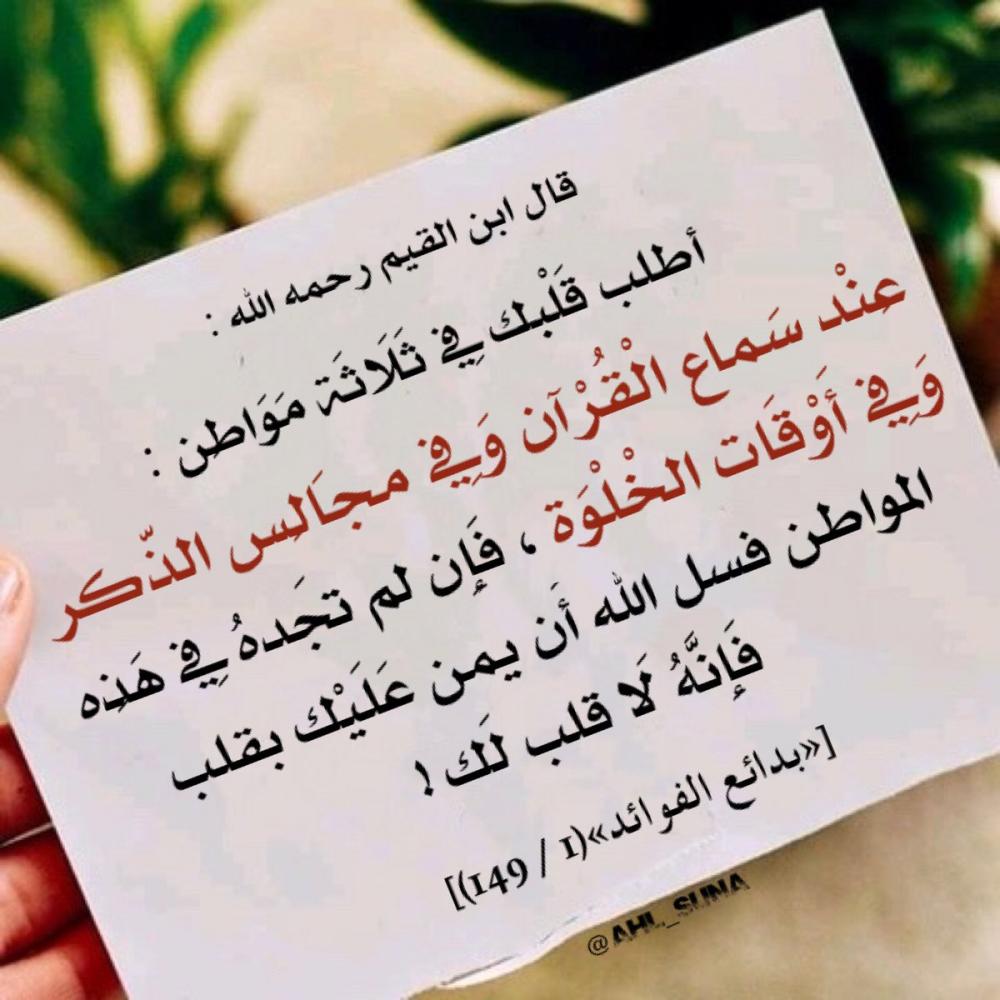 قال ابن القيم رحمه الله :
أطلب قَلْبك فِي ثَلَاثَة مَوَاطن :
عِنْد سَماع الْقُرْآن وَفِي مجَالِس الذّكر
وَفِي أَوْقَات الخْلْوَة ، فَإِن لم تجَدهُ فِي هَذِه
المواطن فسل الله أَن يمن عَلَيْك بقلب
فَإِنَّهُ لَا قلب لَك !
[«بدائع الفوائد»(1 / 149)]
@AHL_SUNA